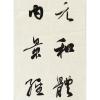 元和體
內景經